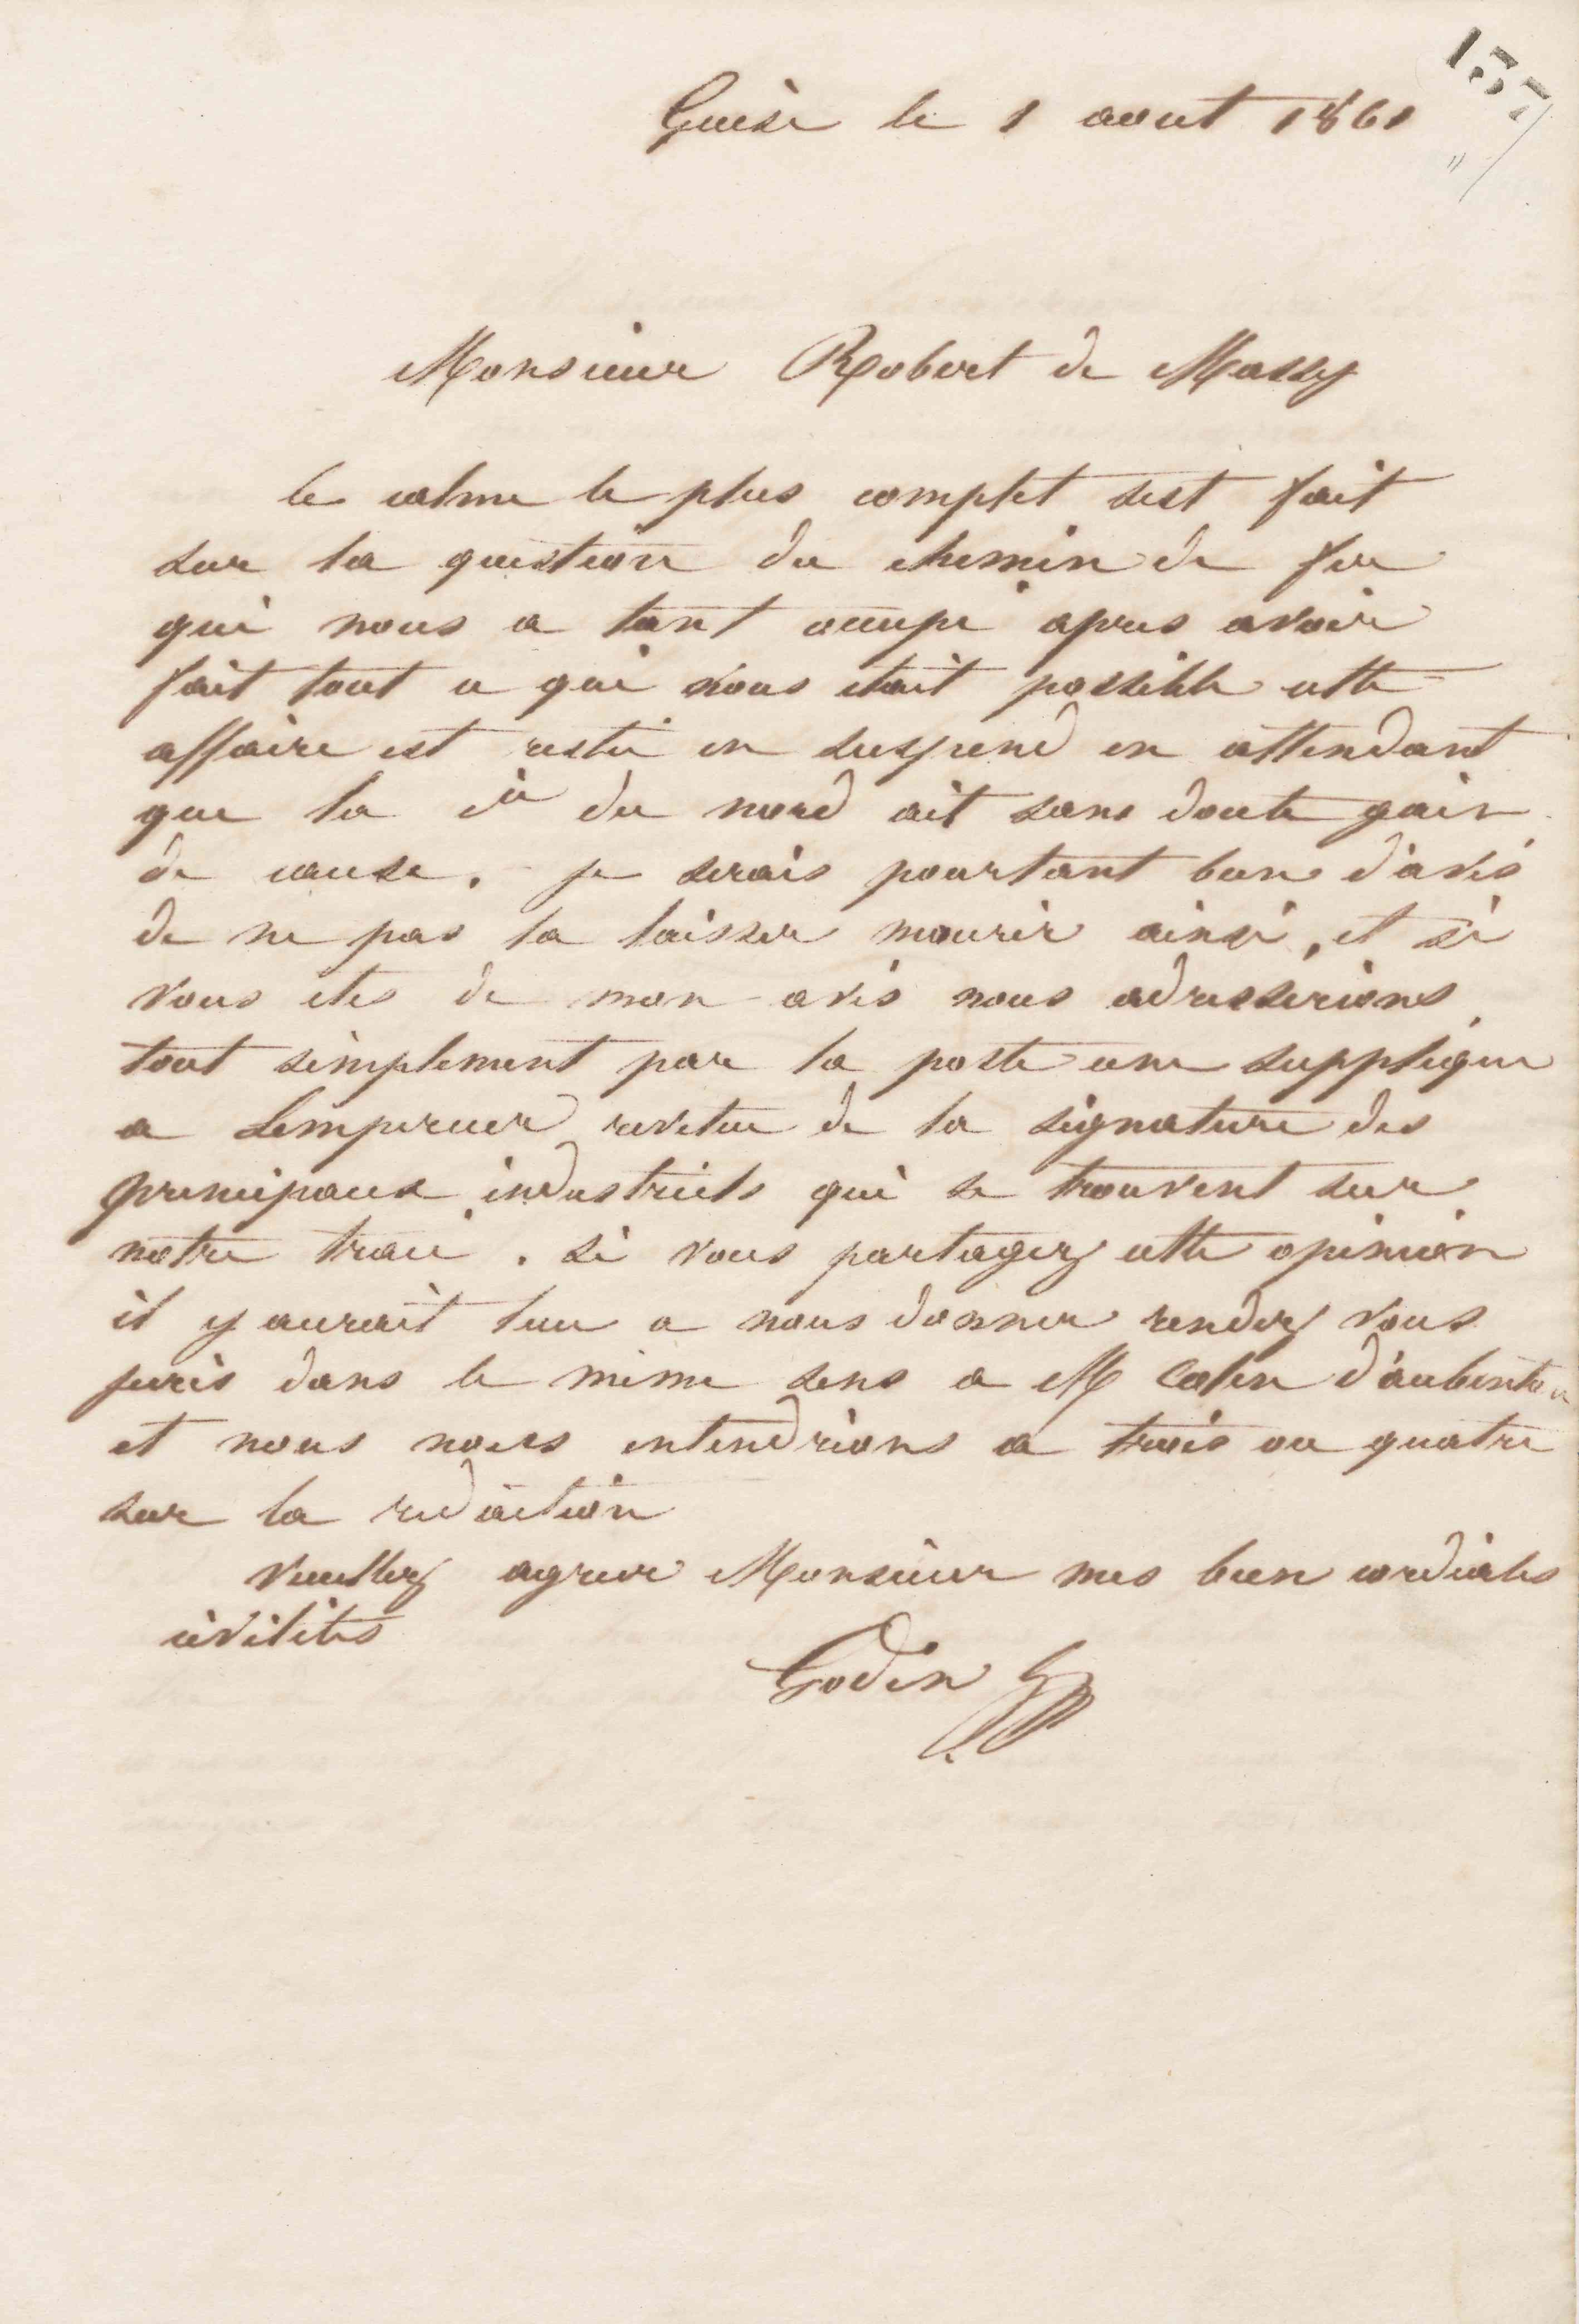 137
Guise le 1 aout 1861
Monsieur Robert de Massy
le calme le plus complet sest fait
sur la question du chemin de fer
qui nous a tant occupé apres avoir
fait tout ce qui nous etait possible cette
affaire est restée en suspend en attendant
que la cie du nord ait sans doute gain
de cause. je serais pourtant bien d'avis
de ne pas la laisser mourir ainsi, et si
vous etes de mon avis nous adresserions
tout simplement par la poste une supplique
a Lempereur revetue de la signature des
principaux industriels qui se trouvent sur
notre tracé. si vous partagez cette opinion
il y aurait lieu a nous donner rendez vous
jecris dans le meme sens a M Colin d'aubenton
et nous nous entendrions a trois ou quatre
sur la redaction
veuillez agreer Monsieur mes bien cordiales
civilités
Godin